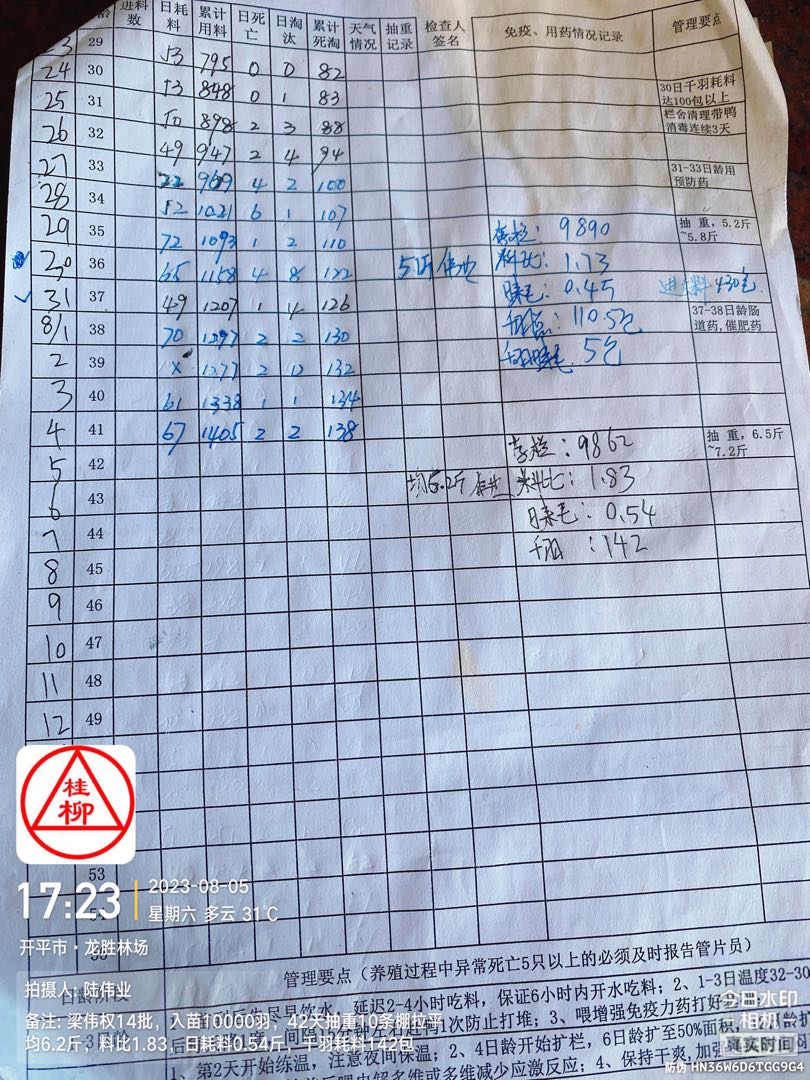 龄 进料数 日耗料 累计用料 日死亡 日淘汰 累计死淘 天气情况 抽重记录 检查人签名 免疫、用药情况记录 管理要点
23 29
24 30 53 795 0 0 82
25 31 53 848 0 1 83 30日千羽耗料达100包以上
26 32 50 898 2 3 88 栏舍清理带鸭消毒连续3天
27 33 49 947 2 4 94 31-33日龄用预防药
28 34 22 969 4 2 100
29 35 52 1021 6 1 107 存栏:9890 抽重,5.2斤~5.8斤
30 36 72 1093 1 2 110 5斤 料比:1.73
31 37 65 1158 4 8 122 日耗:0.45 进料430包
8/1 38 49 1207 1 4 126 千羽:110.5包 37-38日龄肠道药,催肥药
2 39 70 1297 2 2 130 千羽日耗 5包
3 40 x 1277 2 0 132
4 41 61 1338 1 1 134
5 42 67 1405 2 2 138 存栏:9862 抽重,6.5斤~7.2斤
6 43 均6.2斤 料比:1.83
7 44 日耗:0.54
8 45 千羽:142
9 46
10 47
11 48
12 49
53
桂柳
17:23 2023-08-05
星期六 多云 31℃
开平市·龙胜林场
拍摄人:陆伟业
备注:梁伟权14批,入苗10000羽;42天抽重10条棚拉平均6.2斤,料比1.83,日耗料0.54斤,千羽耗料142包
管理要点(养殖过程中异常死亡5只以上的必须及时报告管片员)
日龄阶段
尽早饮水,延迟2-4小时吃料,保证6小时内开水吃料;2、1-3日温度32-30
1次防止打堆;3、喂增强免疫力药打好
1、第2天开始练温,注意夜间保温;2、4日龄开始扩栏,6日龄扩至50%面积,
减少应激反应;4、保持干爽,加强
今日水印
相机
真实时间
防伪 HN36W6D6TGG9G4